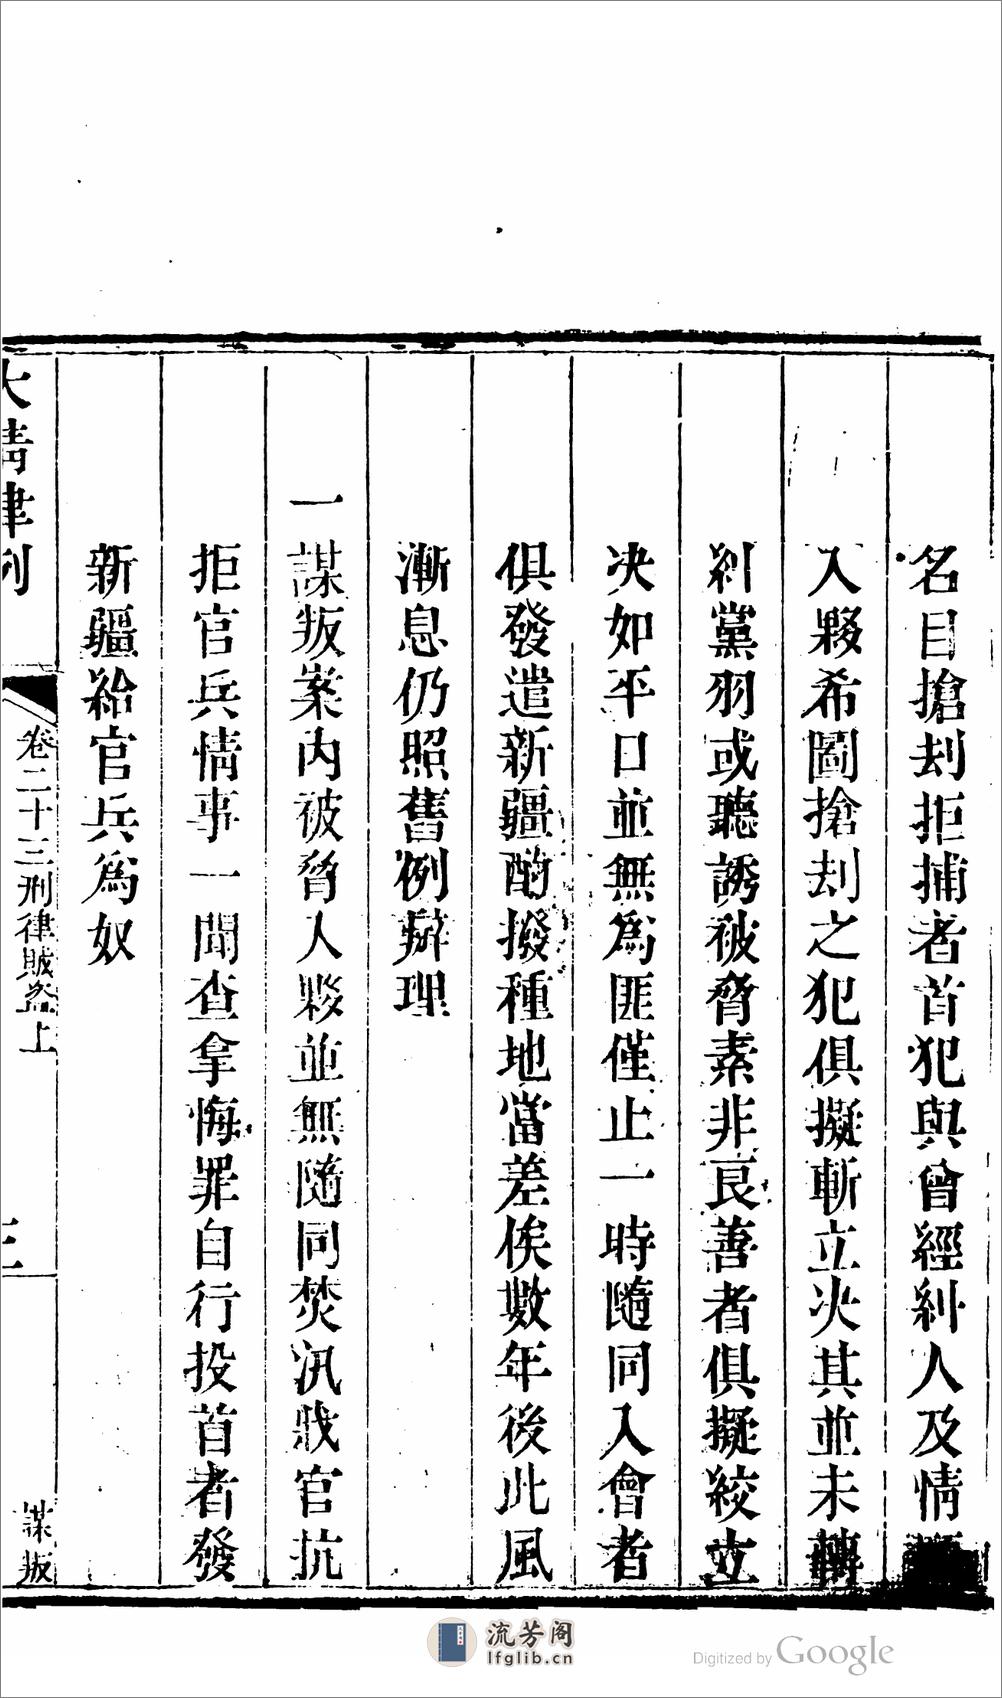 名目搶刦拒捕者首犯與曾經糾人及情
入夥希圖搶刦之犯俱擬斬立决其並未轉
糾黨羽或聽誘被脅素非良善者俱擬絞立
决如平日並無爲匪僅止一時隨同入會者
俱發遣新疆酌撥種地當差俟數年後此風
漸息仍照舊例辦理
一謀叛案內被脅人夥並無隨同焚汛戕官抗
拒官兵情事一聞查拿悔罪自行投首者發
新疆給官兵爲奴
大清律例
卷二十三刑律賊盜上
三
謀叛
流芳阁
lfglib.cn
Digitized by Google